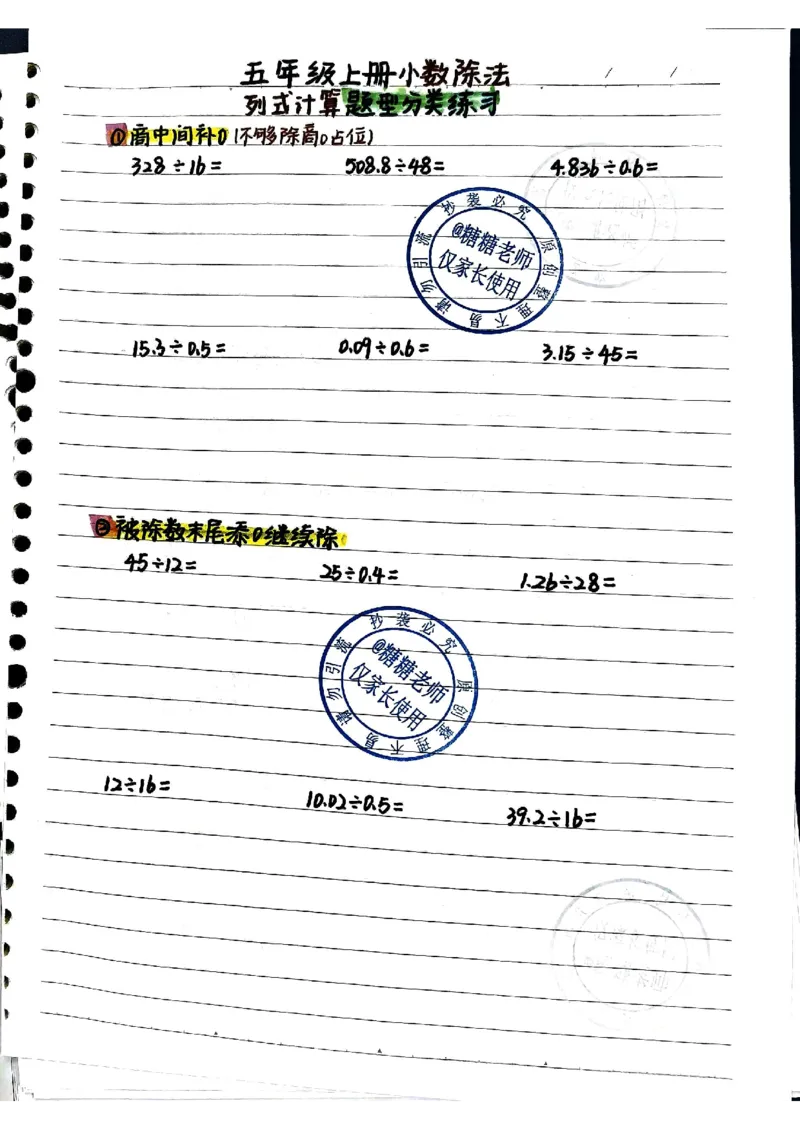 五年级上册小数除法
列式计算题型分类练习
①商中间补0(不够除商0占位)
328÷16= 508.8÷48= 4.836÷0.6=
抄袭必究 原创整理不易 请勿引流
@糖糖老师
仅家长使用
15.3÷0.5= 0.09÷0.6= 3.15÷45=
②被除数末尾添0继续除
45÷12= 25÷0.4= 1.26÷28=
抄袭必究 原创整理不易 请勿引流
@糖糖老师
仅家长使用
12÷16= 10.02÷0.5= 39.2÷16=